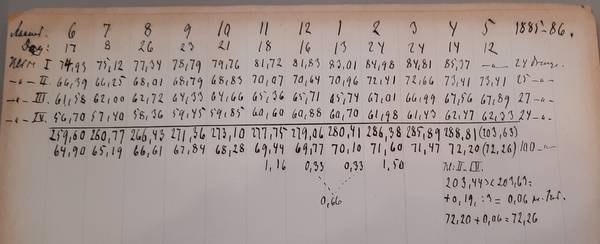 6 7 8 9 10 11 12 1 2 3 4 5 1885-86.
Dag: 17 8 26 23 21 18 16 13 24 24 14 12
I 74,93 75,12 77,34 78,79 79,76 81,72 81,83 83,01 84,98 84,81 85,37 -"- 24
-"- II 66,39 66,25 68,01 68,79 68,83 70,07 70,64 70,96 72,41 72,66 73,41 73,41 25 -"-
-"- III 61,58 62,00 62,72 64,33 64,66 65,36 65,71 65,74 67,01 66,99 67,56 67,89 27 -"-
-"- IV 56,70 57,40 58,36 59,45 59,85 60,60 60,88 60,70 61,98 61,43 62,47 62,33 24 -"-
259,60 260,77 266,43 271,36 273,10 277,75 279,06 280,41 286,38 285,89 288,81 (203,63)
64,90 65,19 66,61 67,84 68,28 69,44 69,77 70,10 71,60 71,47 72,20 (72,26) 100 -"-
1,16 0,33 0,33 1,50 II-IV.
0,66 203,44 203,63=
+0,19, :3 = 0,06
72,20 + 0,06 = 72,26